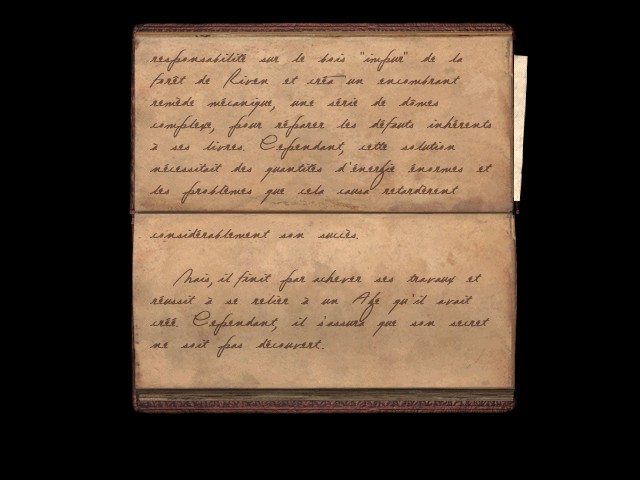 responsabilité sur le bois "impur" de la
forêt de Riven et créa un encombrant
remède mécanique, une série de dômes
complexe, pour réparer les défauts inhérents
à ses livres. Cependant, cette solution
nécessitait des quantités d'énergie énormes et
les problèmes que cela causa retardèrent
considérablement son succès.
Mais, il finit par achever ses travaux et
réussit à se relier à un Age qu'il avait
créé. Cependant, il s'assura que son secret
ne soit pas découvert.